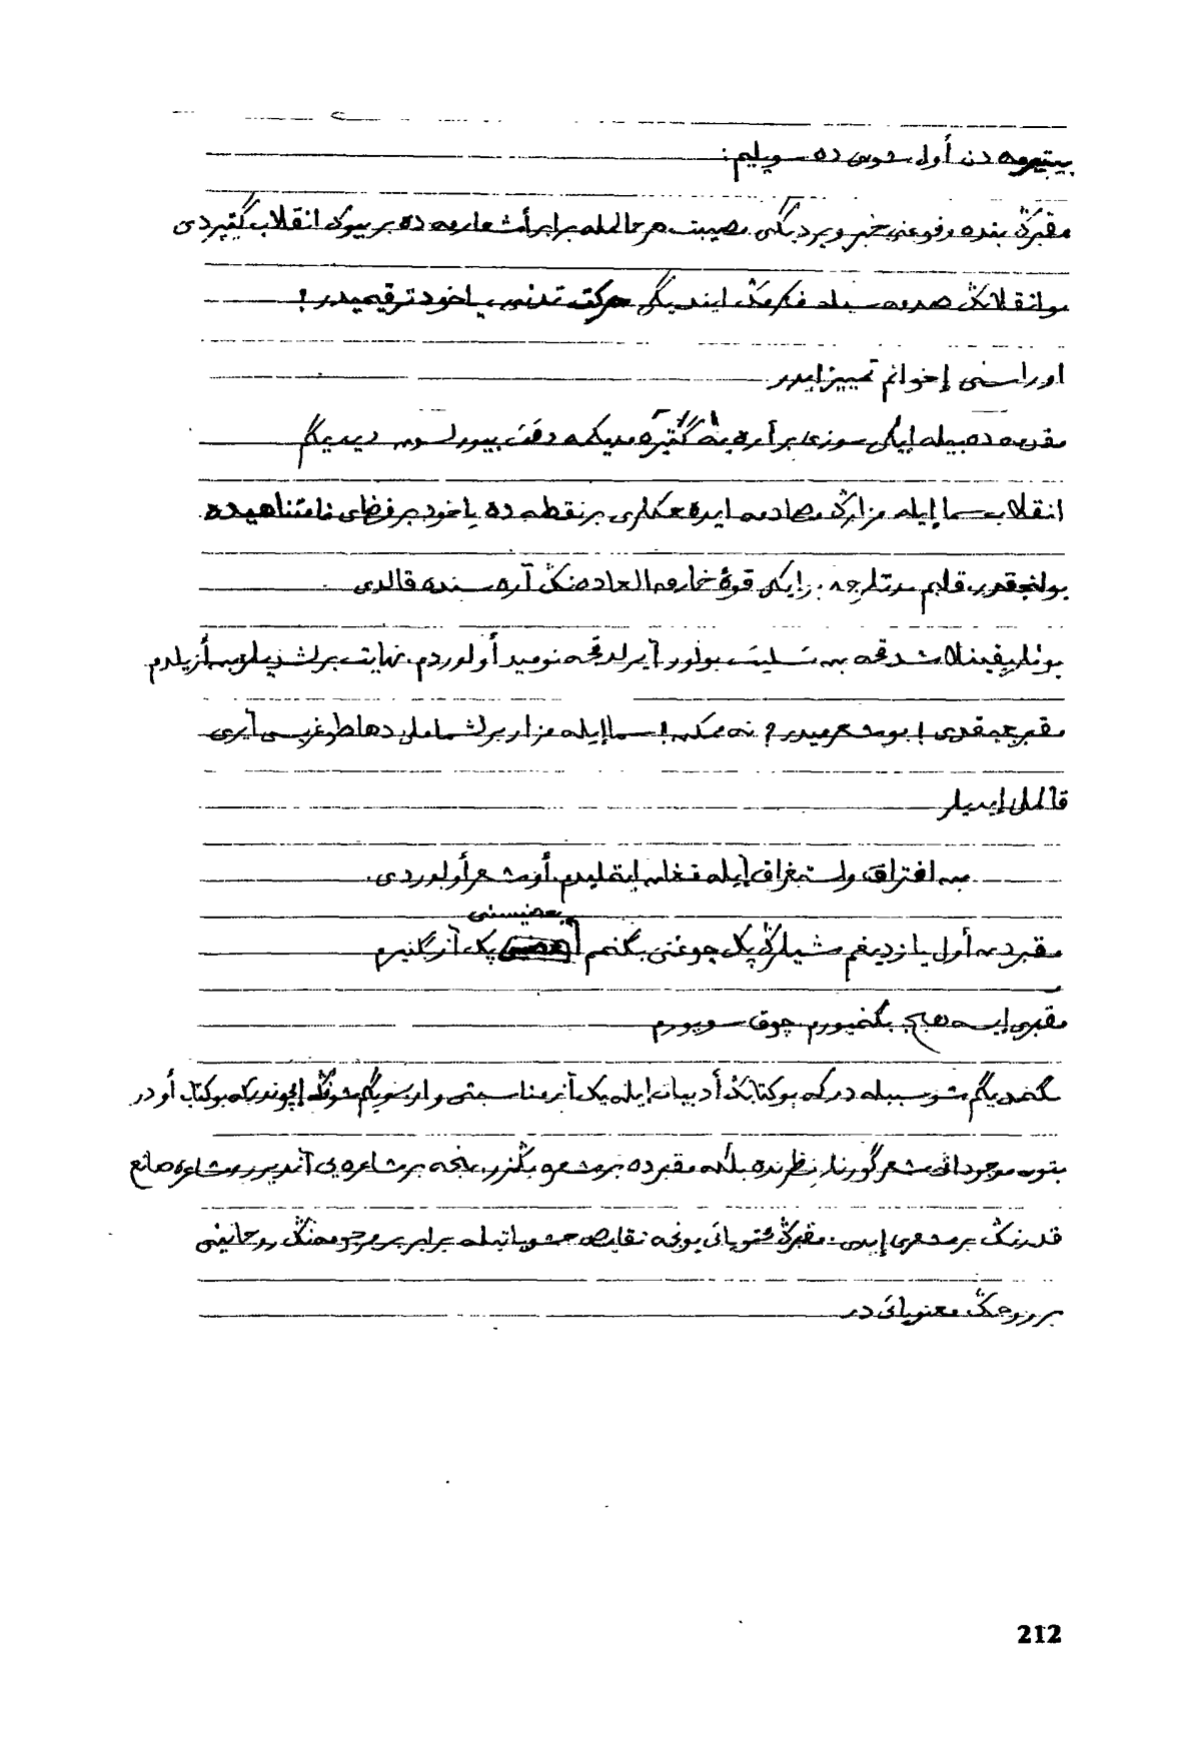 بیتیرمه دن أول شونی ده سویلیم:
مقبرڭ بنده وقوعنی خبر ویردیگی مصیبت هر حالمله برابر أشعارمه ده بر بیوك انقلاب گتیردی
بو انقلابڭ صدمه سیله فکرمڭ ایندیگی حرکت تدنیمی یاخود ترقیمیدر!
اوراسنی إخوانم تمییز ایدر
مقدمه ده بیله ایکی سوزی بر آره یه گتیره مدیکمه دقت بیورلسون دیدیگم
انقلاب سما إیله مزارڭ مصادمه ایده جکلری بر نقطه ده یاخود بر فضای نامتناهیده
بولنجه قدر قلبم مدتلرجه بو ایکی قوۀ خارق العاده نڭ آره سنده قالدی
بونلر یقینلاشدقجه بن تسلیت بولور آیرلدقجه نومید أولوردم. نهایت برلشدیلر بن أزیلدم
مقبر چیقدی! بو شعرمیدر؟ نه ممکن! سما إیله مزار برلشماملی دها طوغریسی آیری
قالملی إیدیلر
بن افتراق واستغراق إیله فغان ایتملیدم. أو شعر أولوردی.
مقبردن أول یازدیغم شیلرڭ پك چوغنی بگنمم بعضیسنی پك آز بگنیرم
مقبری إیسه هیچ بگنمیورم چوق سویورم
بگنمدیگم شو سببله در که بو کتابڭ أدبیات إیله پك آز مناسبتی وار سودیگم شونڭ إیچوندر که بو کتاب أو در
بتون موجوداتی شعر گورنلر نظرنده بلکه مقبر ده بر شعره بڭزر. بنجه بر شاعره یی آندیرر. شاعره صانع
قدرتڭ بر شعری إیدی. مقبرڭ محتویاتی بونجه نقایص حشویاتیله برابر بر مرحومه نڭ روحانیتی
بر روحڭ معنویاتی در
212